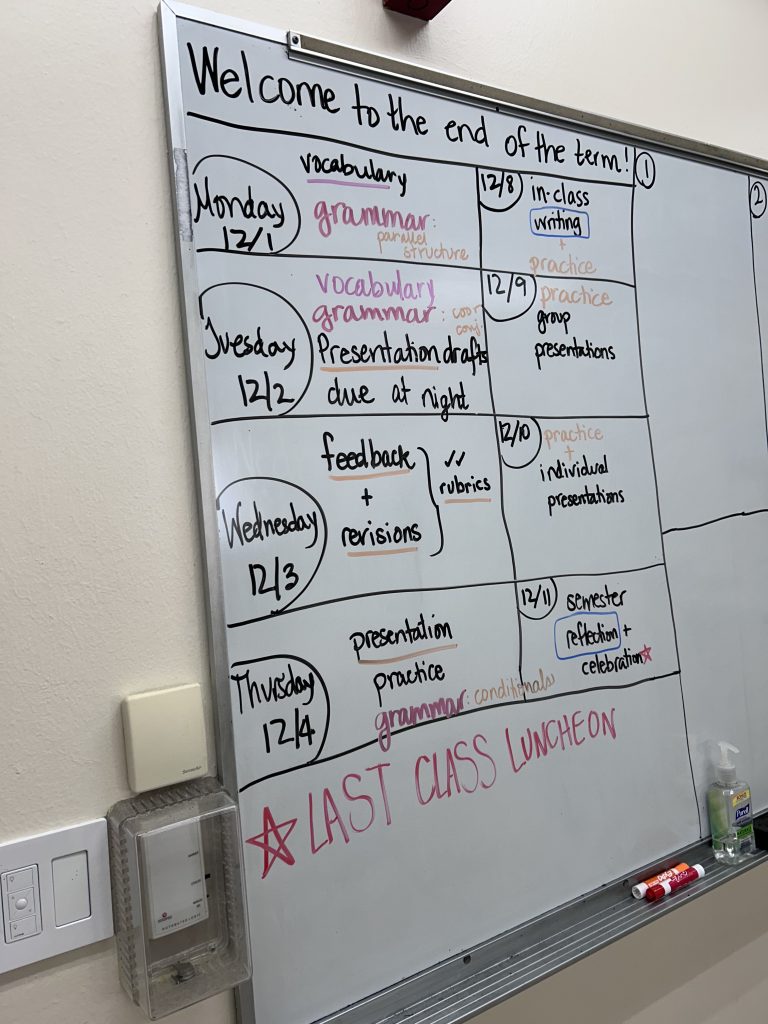 Welcome to the end of the term!
Monday
12/1
vocabulary
grammar:
parallel
structure
12/8
in-class
writing
+
practice
Tuesday
12/2
vocabulary
grammar: coor
conj.
Presentation drafts
due at night
12/9
practice
group
presentations
Wednesday
12/3
feedback
+
revisions
✓✓
rubrics
12/10
practice
+
individual
presentations
Thursday
12/4
presentation
practice
grammar: conditionals
12/11
semester
reflection +
celebration☆
☆ LAST CLASS LUNCHEON
1
2
Purell